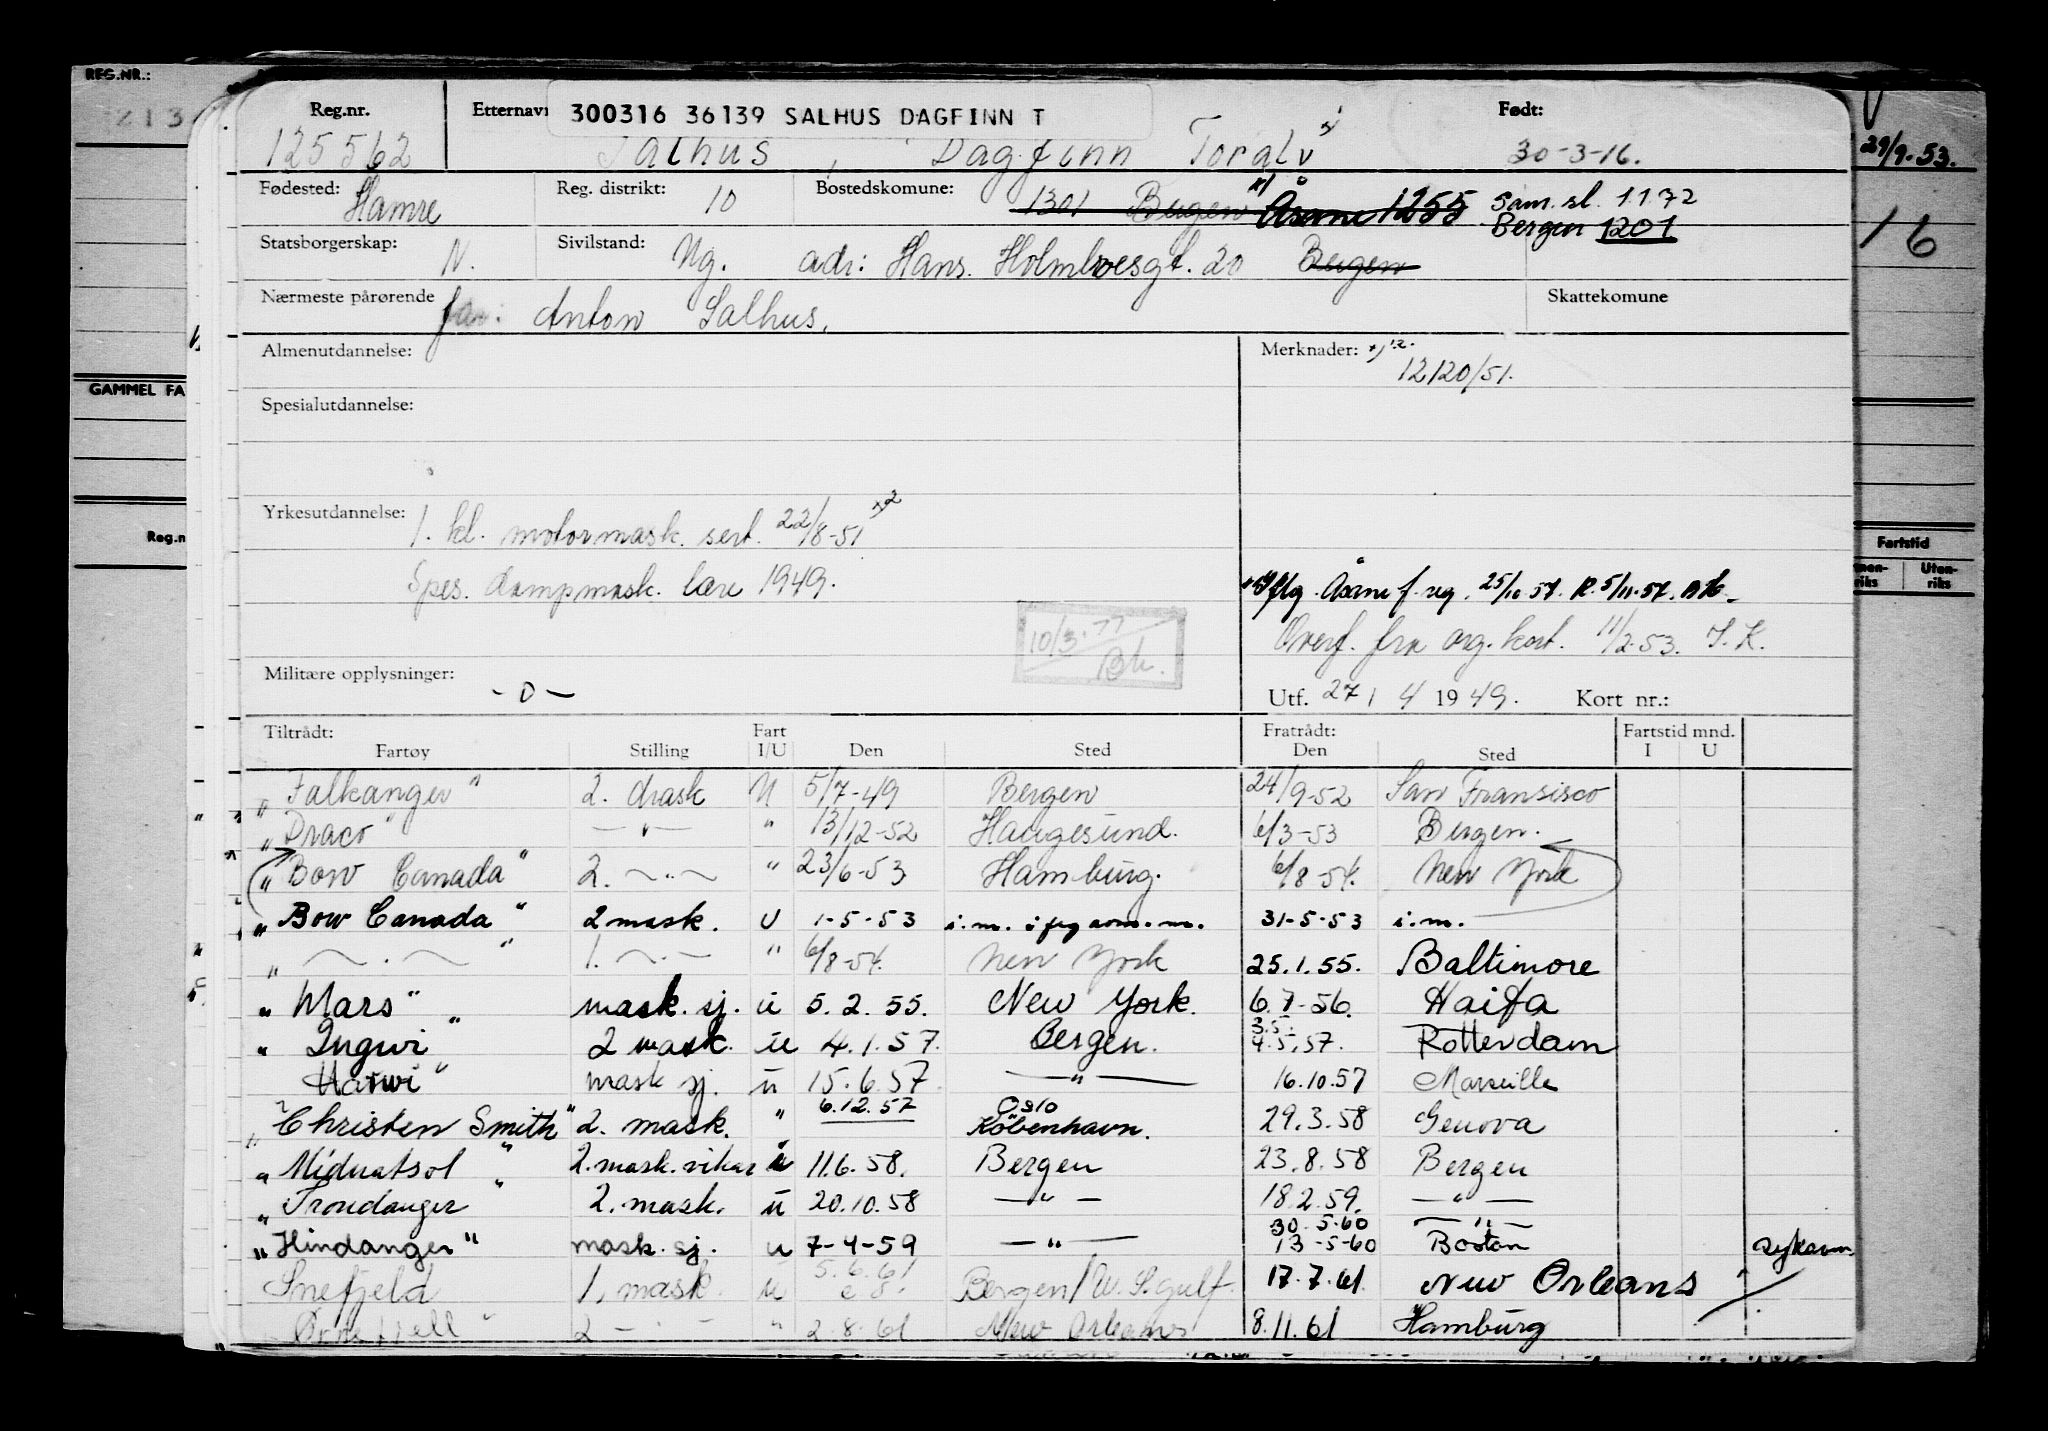 REG.NR.:
213
GAMMEL FA
Reg.n
Reg.nr. Etternavn 300316 36139 SALHUS DAGFINN T Født:
125562 Salhus, Dagfinn Toralv 30-3-16.
29/9-53.
Fødested: Hamre Reg. distrikt: 10 Bostedskomune: 1301 Bergen x/ Åsane 1255 Sam. sl. 1 1 72
Bergen 1201
16
Statsborgerskap: N. Sivilstand: Ug. adr: Hans Holmboesgt. 20 Bergen
Nærmeste pårørende far: Anton Salhus. Skattekomune
Almenutdannelse: Merknader: x/ 12.
12120/51.
Spesialutdannelse:
Yrkesutdannelse: 1. kl. motormask. sert. 22/8-51 x2
Spes. dampmask. lære 1949.
Fartstid
Uten-
riks
flg. Åsane f. reg. 25/10 57. R. 5/11-57.
10/3.77
Bh.
Overf. fra org. kort. 11/2-53. J. K.
Militære opplysninger: -0-
Utf. 27 / 4 1949. Kort nr.:
Tiltrådt: Fart Fratrådt: Fartstid mnd.
Fartøy Stilling I/U Den Sted Den Sted I U
"Falkanger" 2. mask U 5/7-49 Bergen 24/9-52 San Fransisco
"Draco" — " — " 13/12-52 Haugesund. 6/3-53 Bergen.
"Bow Canada" 2. ~ " ~ " 23/6-53 Hamburg. 6/8-54. New York
"Bow Canada" 2 mask. U 1-5-53 i.m. i flg aom. m. 31-5-53 i.m.
" ~ . ~ " 1. ~ . — " 6/8-54. New York 25.1.55. Baltimore
"Mars" mask. sj. u 5.2.55. New York. 6.7-56. Haifa
"Ingwi" 2 mask. u 4.1.57. Bergen. 3.5. 4.5.57. Rotterdam
"Harwi" mask sj. u 15.6.57 — " — 16.10.57 Marseille
"Christen Smith" 2. mask. " 6.12.57 Oslo København. 29.3.58 Genova
"Midnatsol" 2. mask. vikar u 11.6.58. Bergen 23.8.58 Bergen
"Trondanger" 2. mask. u 20.10.58 — " — 18.2.59. — " —
30-5-60 — " —
"Hindanger" mask. sj. u 7-4-59 — " — 13-5-60 Boston sykavm.
Snefjeld 1. mask. u 5.6.61 Bergen/U.S.gulf. 17.7.61. New Orleans
Ørnefjell" 2 — . — " 2.8.61 New Orleans 8.11.61 Hamburg